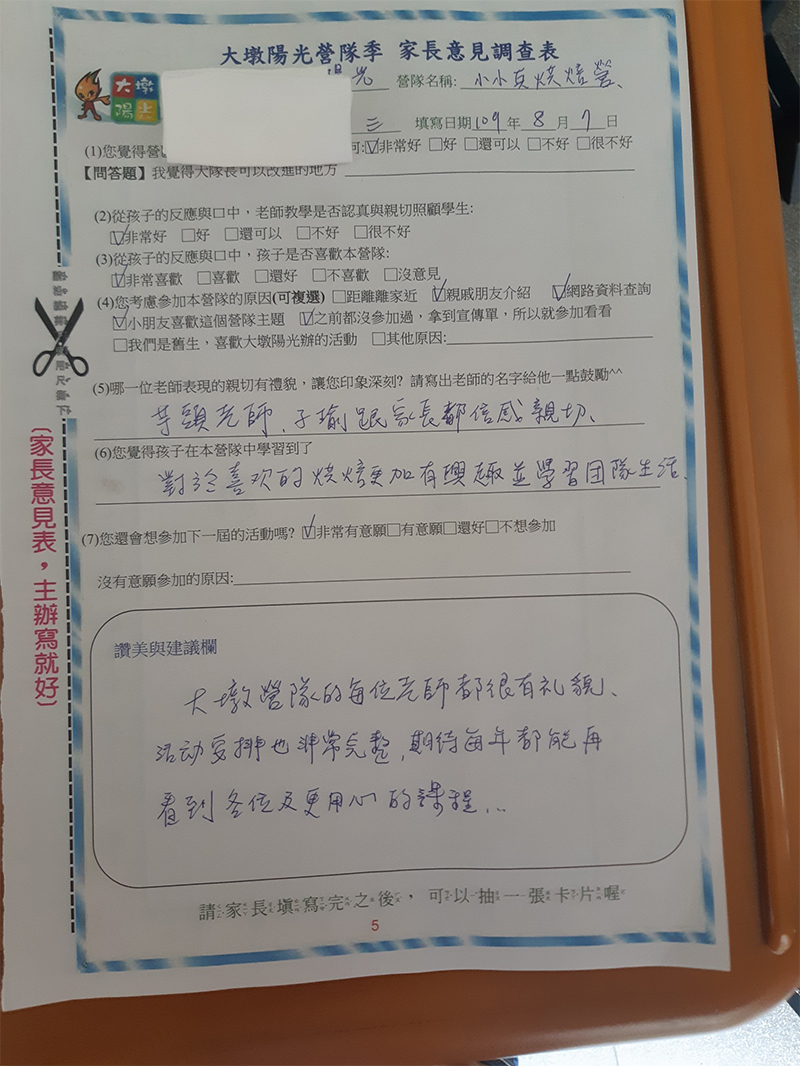 大墩陽光營隊季 家長意見調查表
大墩
陽光
陽光 營隊名稱: 小小貝烘焙營、
三 填寫日期109年8月7日
(1)您覺得營 何:☑非常好 □好 □還可以 □不好 □很不好
【問答題】我覺得大隊長可以改進的地方
(2)從孩子的反應與口中，老師教學是否認真與親切照顧學生:
☑非常好 □好 □還可以 □不好 □很不好
(3)從孩子的反應與口中，孩子是否喜歡本營隊:
☑非常喜歡 □喜歡 □還好 □不喜歡 □沒意見
(4)您考慮參加本營隊的原因(可複選) □距離離家近 ☑親戚朋友介紹 ☑網路資料查詢
☑小朋友喜歡這個營隊主題 ☑之前都沒參加過，拿到宣傳單，所以就參加看看
□我們是舊生，喜歡大墩陽光辦的活動 □其他原因:
(5)哪一位老師表現的親切有禮貌，讓您印象深刻? 請寫出老師的名字給他一點鼓勵^^
芋頭老師、子瑜跟家長都倍感親切、
(6)您覺得孩子在本營隊中學習到了
對於喜欢的烘焙更加有興趣並學習团隊生活、
(7)您還會想參加下一屆的活動嗎? ☑非常有意願□有意願□還好□不想參加
沒有意願參加的原因:
讚美與建議欄
大墩營隊的每位老師都很有礼貌、
活动安排也非常完整,期待每年都能再
看到各位及更用心的課程...
請家長填寫完之後，可以抽一張卡片喔
5
〔家長意見表，主辦寫就好〕